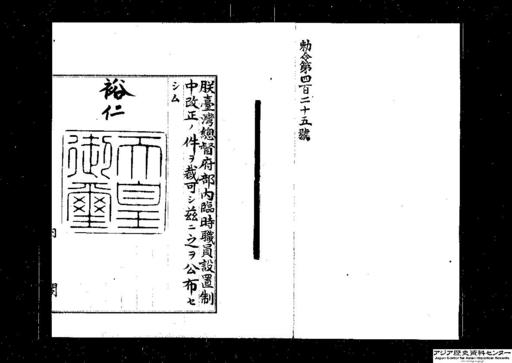 勅令第四百二十五號
朕臺灣總督府部內臨時職員設置制
中改正ノ件ヲ裁可シ茲ニ之ヲ公布セ
シム
裕仁
天皇
御璽
內
閣
アジア歴史資料センター
Japan Center for Asian Historical Records